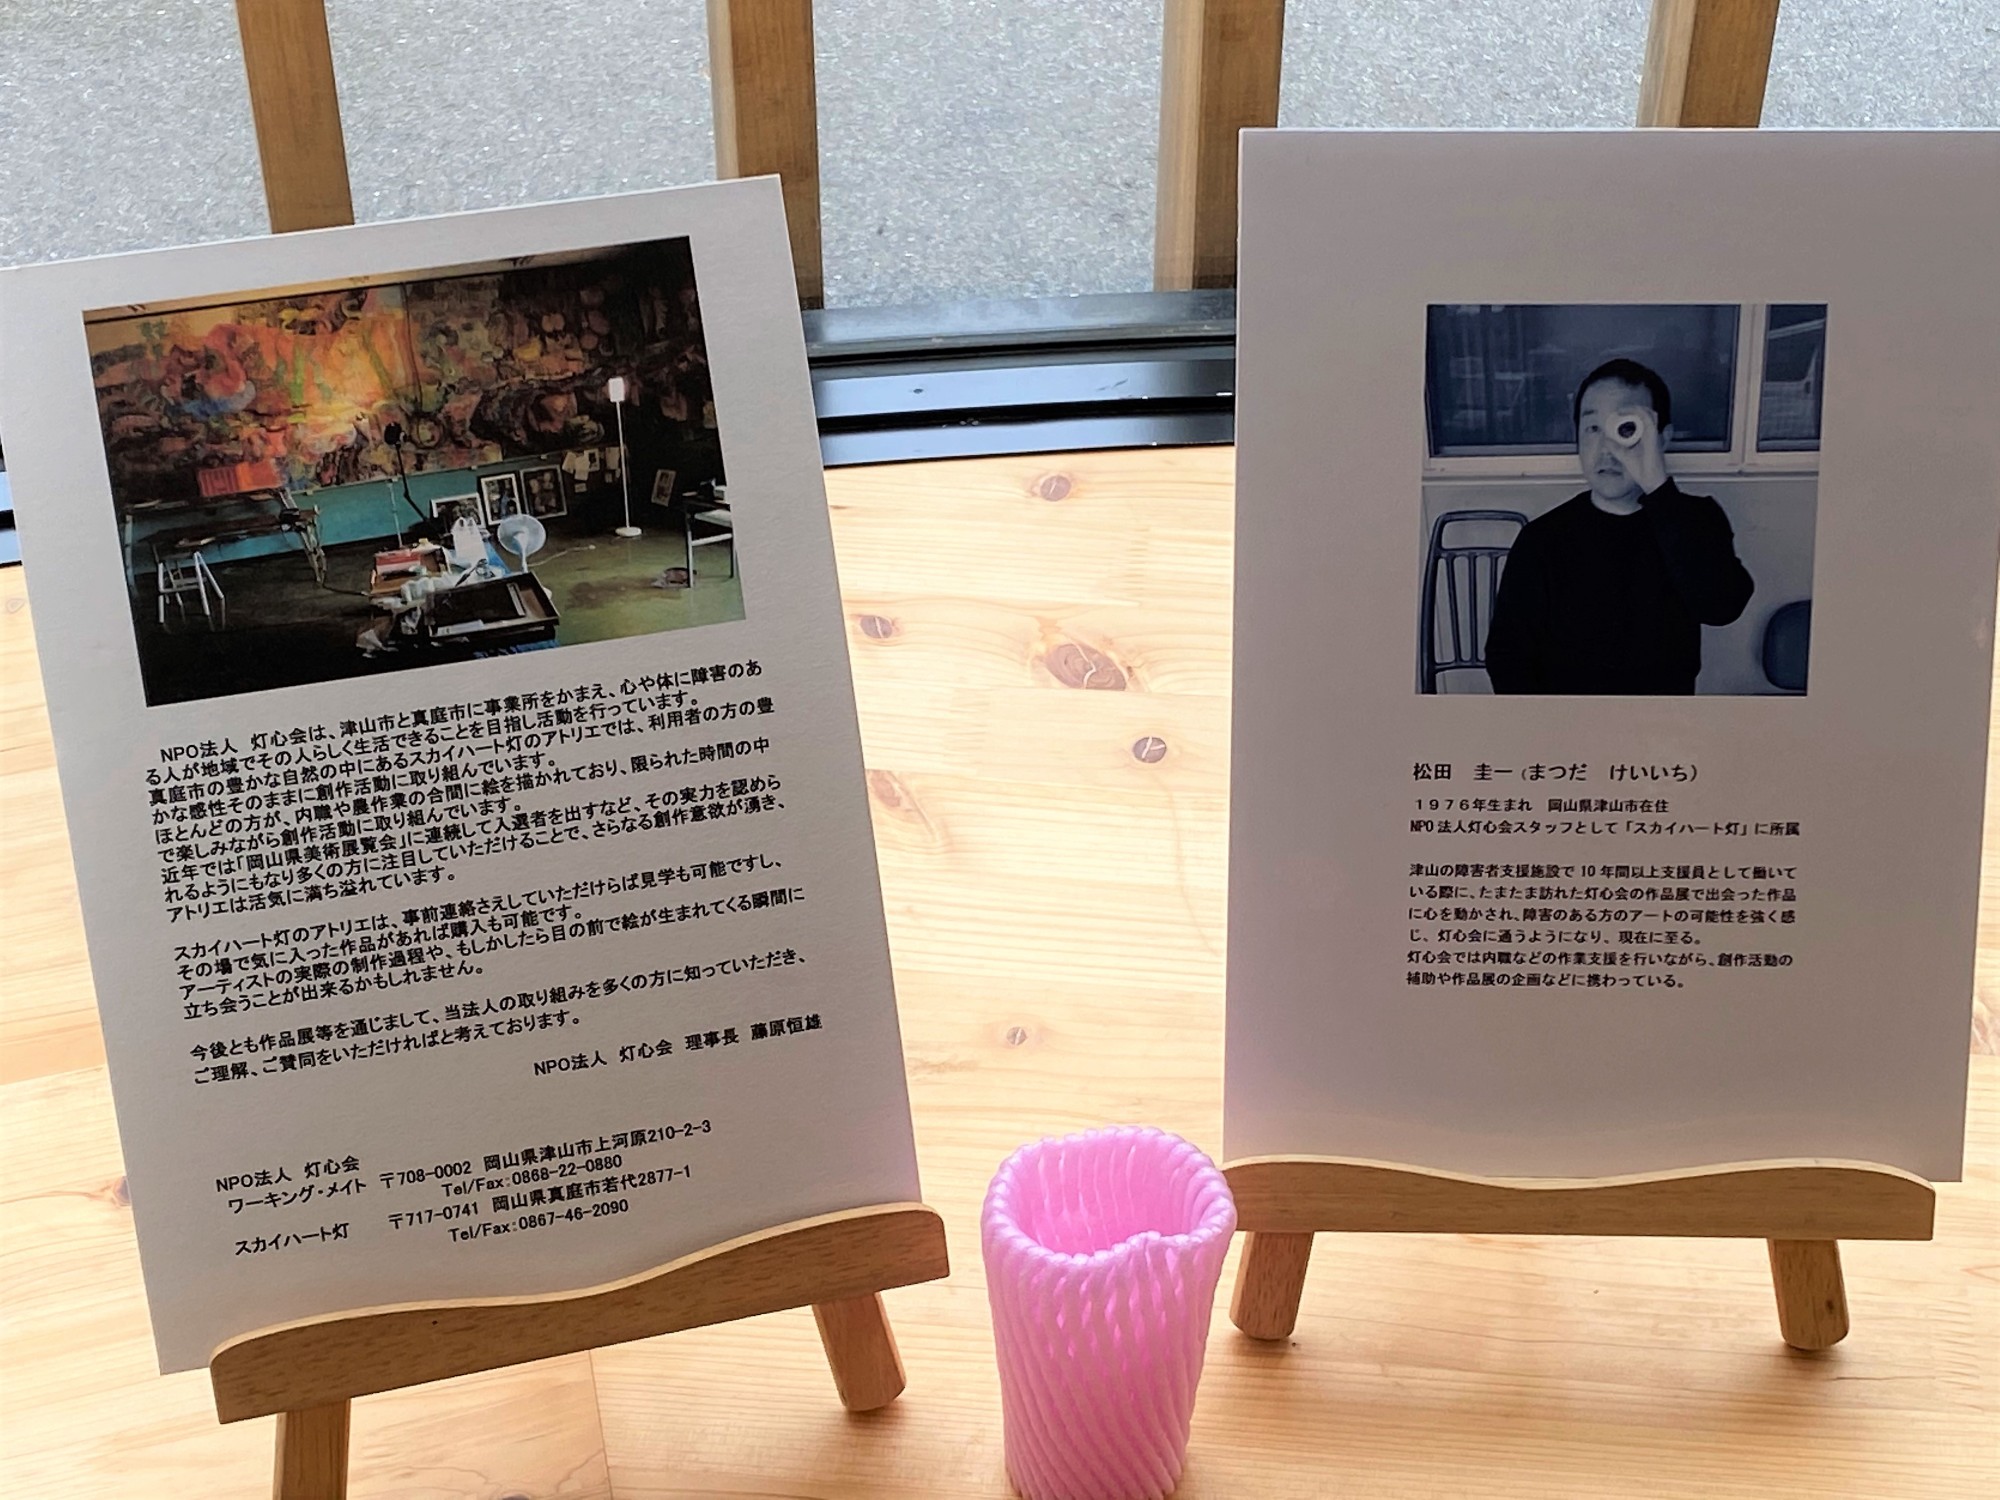 NPO法人　灯心会は、津山市と真庭市に事業所をかまえ、心や体に障害のあ
る人が地域でその人らしく生活できることを目指し活動を行っています。
真庭市の豊かな自然の中にあるスカイハート灯のアトリエでは、利用者の方の豊
かな感性そのままに創作活動に取り組んでいます。
ほとんどの方が、内職や農作業の合間に絵を描かれており、限られた時間の中
で楽しみながら創作活動に取り組んでいます。
近年では「岡山県美術展覧会」に連続して入選者を出すなど、その実力を認めら
れるようにもなり多くの方に注目していただけることで、さらなる創作意欲が湧き、
アトリエは活気に満ち溢れています。
スカイハート灯のアトリエは、事前連絡さえしていただけらば見学も可能ですし、
その場で気に入った作品があれば購入も可能です。
アーティストの実際の制作過程や、もしかしたら目の前で絵が生まれてくる瞬間に
立ち会うことが出来るかもしれません。
今後とも作品展等を通じまして、当法人の取り組みを多くの方に知っていただき、
ご理解、ご賛同をいただければと考えております。
NPO法人　灯心会　理事長　藤原恒雄
NPO法人　灯心会
ワーキング・メイト　〒708-0002　岡山県津山市上河原210-2-3
Tel/Fax:0868-22-0880
スカイハート灯　〒717-0741　岡山県真庭市若代2877-1
Tel/Fax:0867-46-2090
松田　圭一（まつだ　けいいち）
１９７６年生まれ　岡山県津山市在住
NPO法人灯心会スタッフとして「スカイハート灯」に所属
津山の障害者支援施設で10年間以上支援員として働いて
いる際に、たまたま訪れた灯心会の作品展で出会った作品
に心を動かされ、障害のある方のアートの可能性を強く感
じ、灯心会に通うようになり、現在に至る。
灯心会では内職などの作業支援を行いながら、創作活動の
補助や作品展の企画などに携わっている。